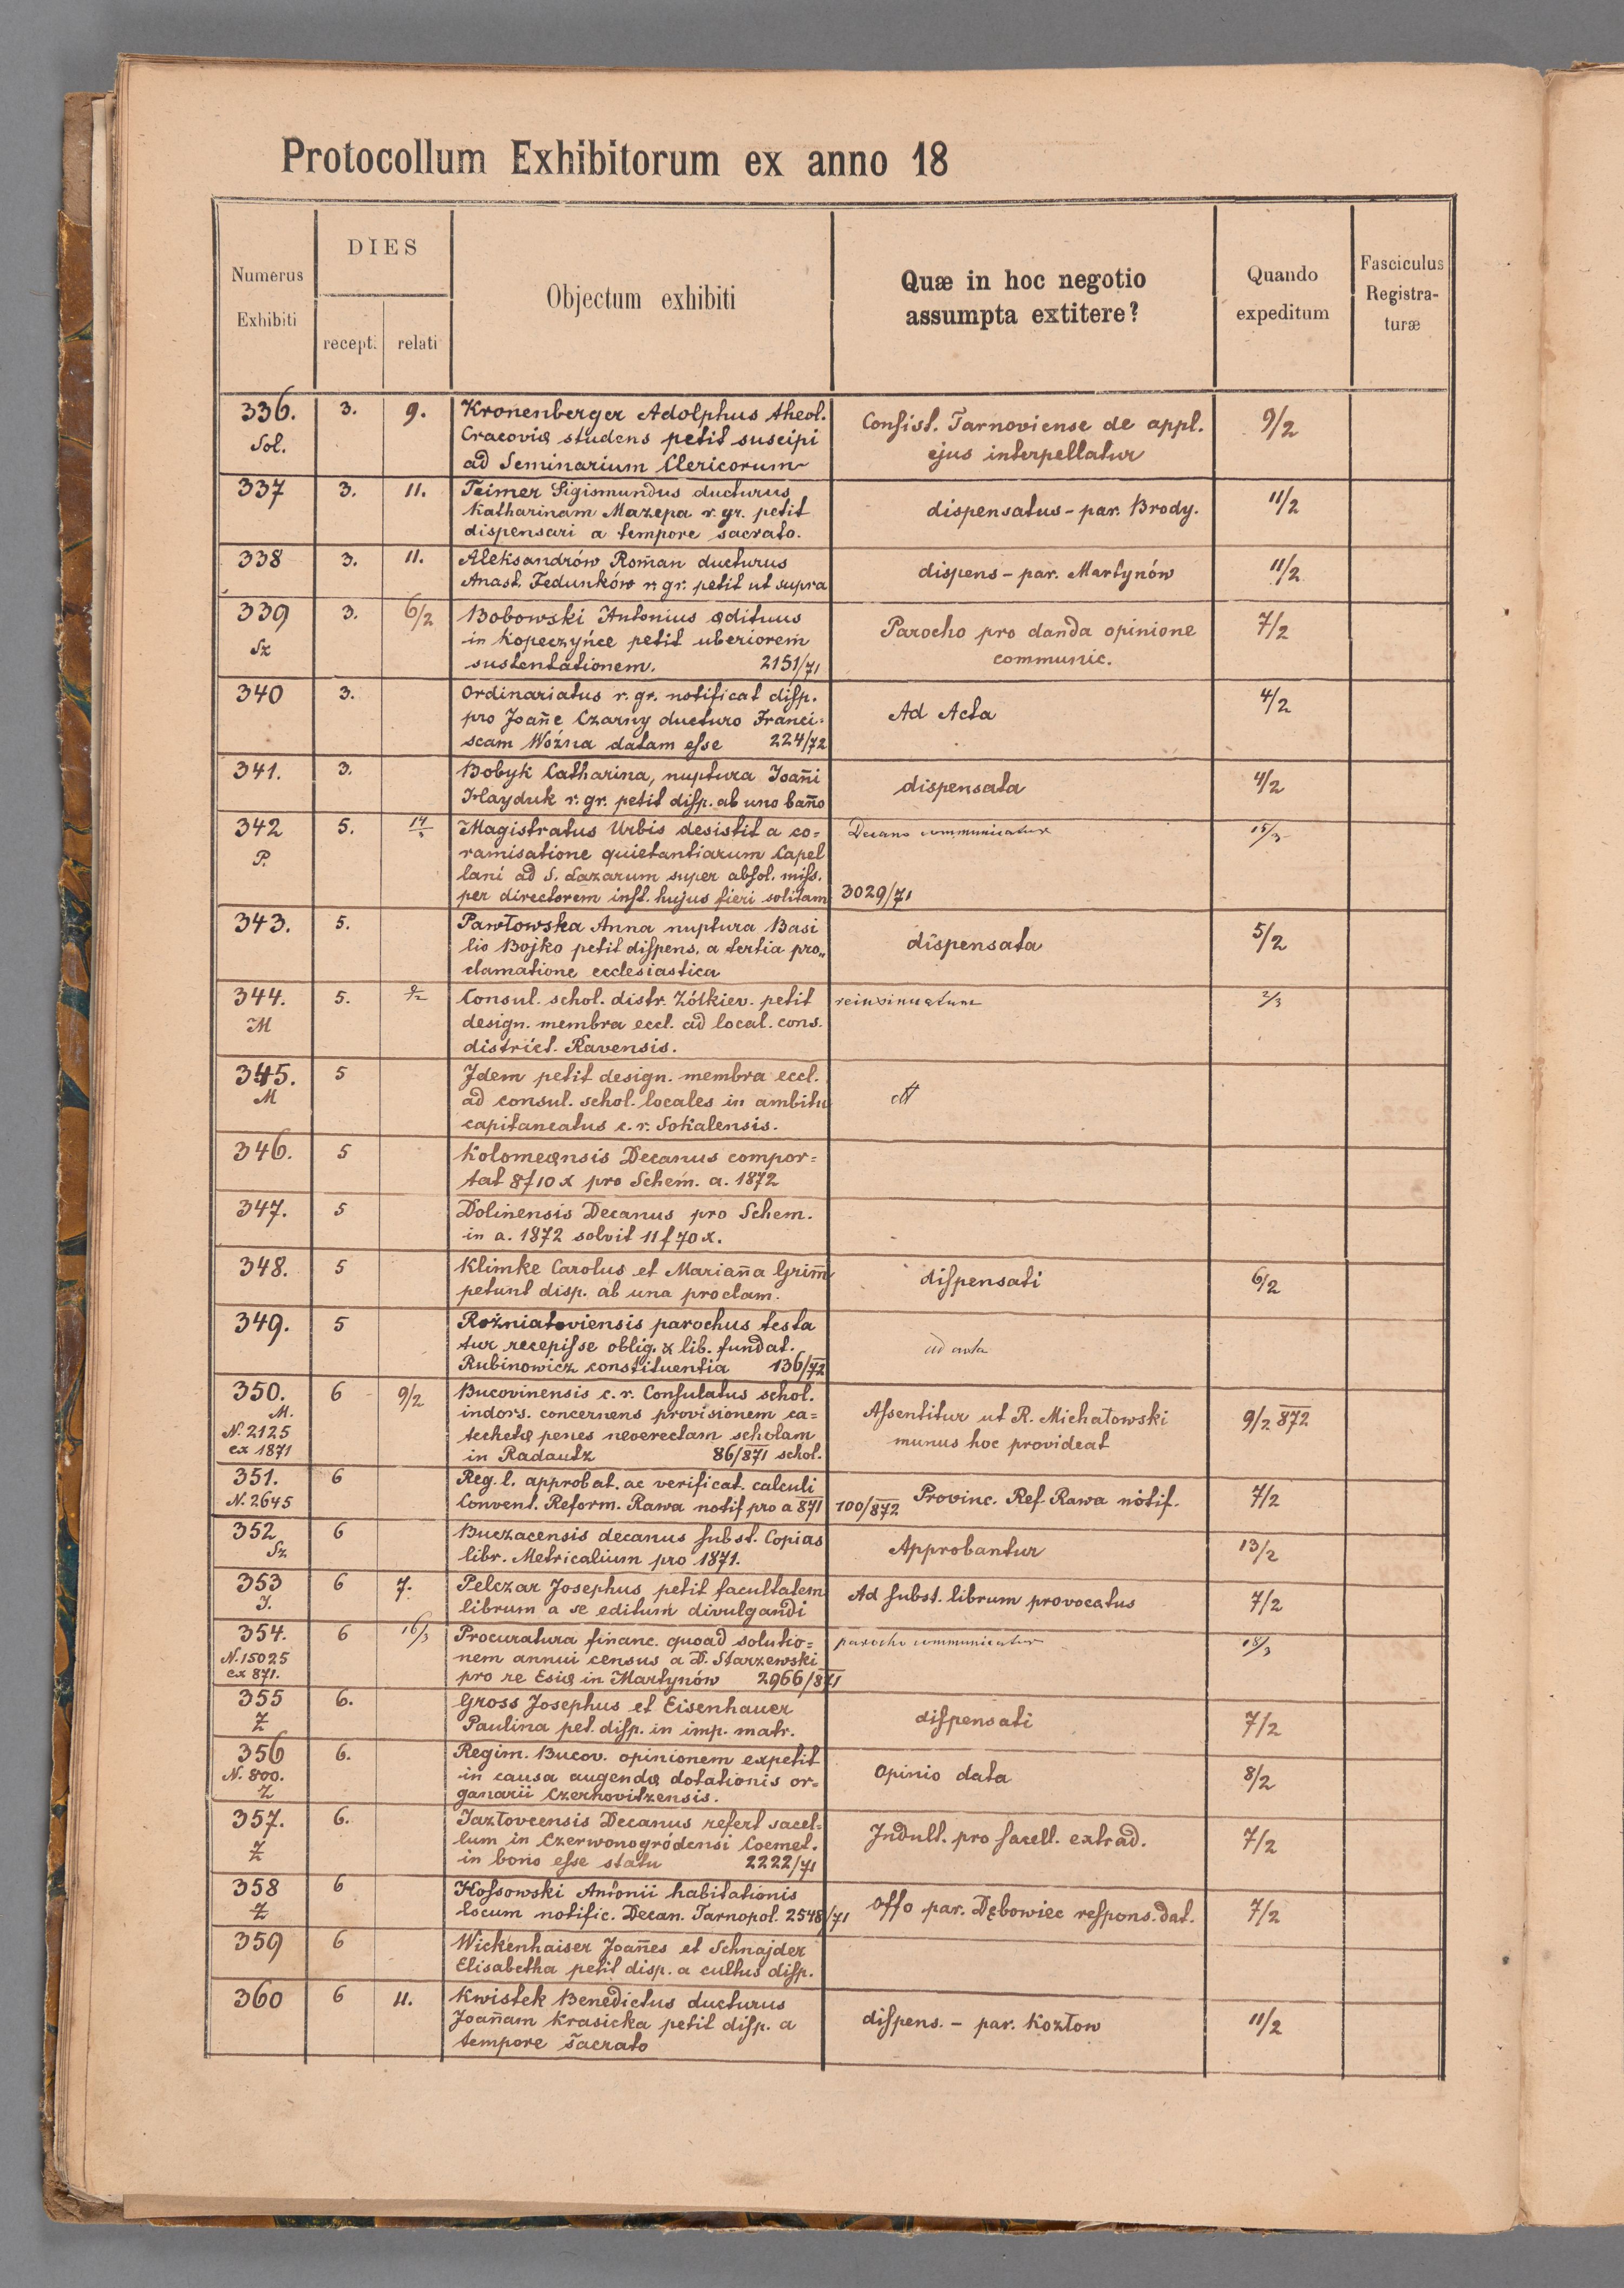 Protocollum Exhibitorum ex anno 18
Numerus Exhibiti
DIES
recept.
relati
Objectum exhibiti
Quæ in hoc negotio assumpta extitere?
Quando expeditum
Fasciculus Registra-
turæ
336. 3. 9. Kronenberger Adolphus theol. Consist. Tarnoviense de appl. 9/2
Sol. Cracoviæ studens petit suscipi ejus interpellatur
ad Seminarium Clericorum
337 3. 11. Teimer Sigismundus ducturus
Katharinam Mazepa r. gr. petit dispensatus - par. Brody. 11/2
dispensari a tempore sacrato.
338 3. 11. Aleksandrów Roman ducturus dispens - par. Martynów 11/2
Anast. Fedunków r. gr. petit ut supra
339 3. 6/2 Bobowski Antonius ædituus Parocho pro danda opinione 7/2
Sz in Kopeczyńce petit uberiorem communic.
sustentationem. 2151/71
340 3. Ordinariatus r. gr. notificat disp. 4/2
pro Joañe Czarny ducturo Franci= Ad Acta
scam Woźna datam esse 224/72
341. 3. Bobyk Catharina, nuptura Joañi dispensata 4/2
Hayduk r. gr. petit disp. ab uno baño
342 5. 14 Magistratus Urbis desistit a co= Decano communicatur 15/3
P. ramisatione quietantiarum Capel
lani ad S. Lazarum super absol. miss.
per directorem inst. hujus fieri solitam 3029/71
343. 5. Pawłowska Anna nuptura Basi
lio Bojko petit dispens. a tertia pro„ dispensata 5/2
clamatione ecclesiastica
344. 5. Consul. schol. distr. Żółkiev. petit reinsinuatum 2/3
M design. membra eccl. ad local. cons.
district. Ravensis.
345. 5 Idem petit design. membra eccl.
M ad consul. schol. locales in ambitu
capitaneatus c. r. Sokalensis.
346. 5 Kolomeænsis Decanus compor=
tat 8f 10x pro Schem. a. 1872
347. 5 Dolinensis Decanus pro Schem.
in a. 1872 solvit 11f 70x.
348. 5 Klimke Carolus et Mariaña Grim̃ dispensati 6/2
petunt disp. ab una proclam.
349. 5 Rożniatoviensis parochus testa
tur recepisse oblig. & lib. fundat. ad acta
Rubinowicz constituentia 136/72
350. 6 9/2 Bucovinensis c. r. Consulatus schol.
M. indors. concernens provisionem ca= Assentitur ut R. Michałowski 9/2 872
N. 2125 techetæ penes neoerectam scholam munus hoc provideat
ex 1871 in Radautz 86/871 schol.
351. 6 Reg. l. approbat. ac verificat. calculi
N. 2645 Convent. Reform. Rawa notif pro a 871 100/872 Provinc. Ref. Rawa notif. 7/2
352 6 Buczacensis decanus subst. Copias Approbantur 13/2
Sz. libr. Metricalium pro 1871.
353 6 7. Pelczar Josephus petit facultatem Ad subst. librum provocatus 7/2
J. librum a se editum divulgandi
354. 6 16/3 Procuratura financ. quoad solutio= parocho communicatur 18/3
N. 15025 nem annui census a D. Starzewski
ex 871. pro re Esiæ in Martynów 2966/871
355 6. Gross Josephus et Eisenhauer dispensati 7/2
Z Paulina pet. disp. in imp. matr.
356 6. Regim. Bucov. opinionem expetit
N. 800. in causa augendæ dotationis or= Opinio data 8/2
Z ganarii Czernovitzensis.
357. 6. Jazłoveensis Decanus refert sacel=
Z lum in Czerwonogródensi Coemet. Indult. pro sacell. extrad. 7/2
in bono esse statu 2222/71
358 6 Kossowski Antonii habitationis
Z locum notific. Decan. Tarnopol. 2548/71 Offo par. Dębowiec respons. dat. 7/2
359 6 Wickenhaiser Joañes et Schnajder
Elisabetha petit disp. a cultus disp.
360 6 11. Kwistek Benedictus ducturus
Joañam Krasicka petit disp. a dispens. - par. Kozłow 11/2
tempore sacrato